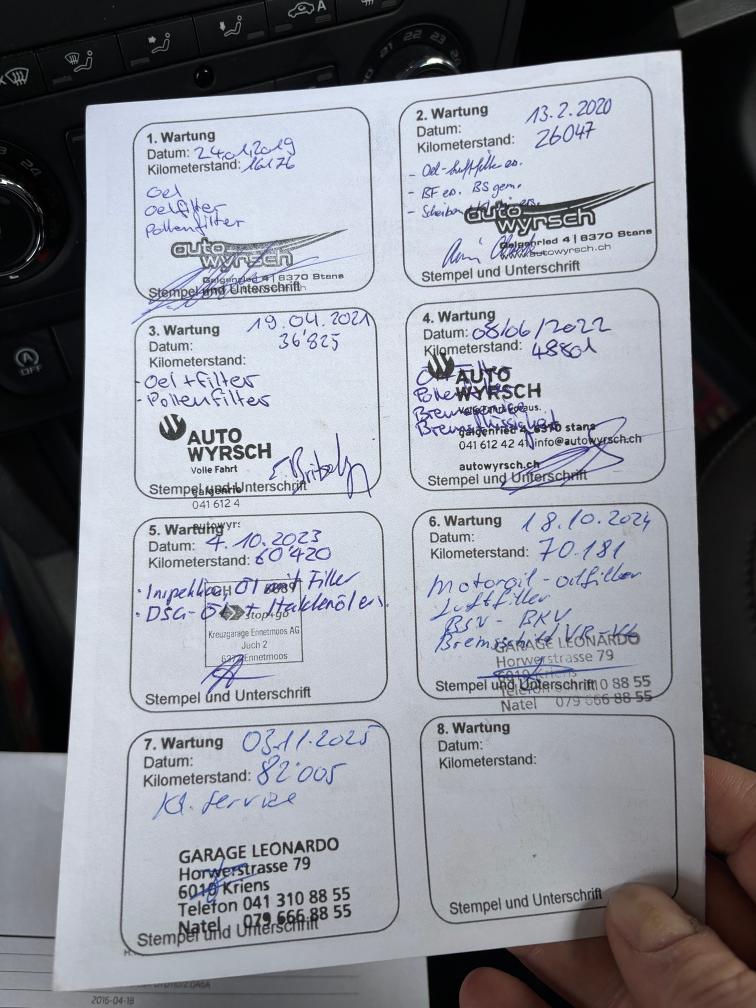 A
21
22
23
24
A
OFF
1. Wartung
Datum: 24.01.2019
Kilometerstand: 16176
Oel
Oelfilter
Pollenfilter
auto
wyrsch
Galgenried 4 | 6370 Stans
Stempel und Unterschrift
2. Wartung
13.2.2020
Datum:
26047
Kilometerstand:
- Oel-Luftfilter er.
- BF er. BS gem.
- Scheiben
auto
wyrsch
Galgenried 4 | 6370 Stans
www.autowyrsch.ch
Stempel und Unterschrift
3. Wartung
19.04.2021
Datum:
36'825
Kilometerstand:
- Oel + Filter
- Pollenfilter
AUTO
WYRSCH
Volle Fahrt
Stempel und Unterschrift
galgenrie
041 612 4
autowyrs
4. Wartung
Datum: 08/06/2022
Kilometerstand: 48801
AUTO
WYRSCH
Volle Fahrt voraus.
Bremsflüssigkeit
galgenried 4, 6370 stans
041 612 42 41, info@autowyrsch.ch
autowyrsch.ch
Stempel und Unterschrift
5. Wartung
Datum: 4.10.2023
Kilometerstand: 60'420
· Inspektion, Öl mit Filter
· DSG-Öl +
stop+go
Kreuzgarage Ennetmoos AG
Juch 2
Ennetmoos
Stempel und Unterschrift
6. Wartung
18.10.2024
Datum:
Kilometerstand: 70.181
Motoroil - oilfilter
Luftfilter
BSV - BKV
GARAGE LEONARDO
Horwerstrasse 79
6010 Kriens
Stempel und Unterschrift
Telefon 041 310 88 55
Natel 079 666 88 55
7. Wartung
03.11.2025
Datum:
Kilometerstand: 82'005
Kl. Service
GARAGE LEONARDO
Horwerstrasse 79
6010 Kriens
Telefon 041 310 88 55
Natel 079 666 88 55
Stempel und Unterschrift
8. Wartung
Datum:
Kilometerstand:
Stempel und Unterschrift
2016-04-18